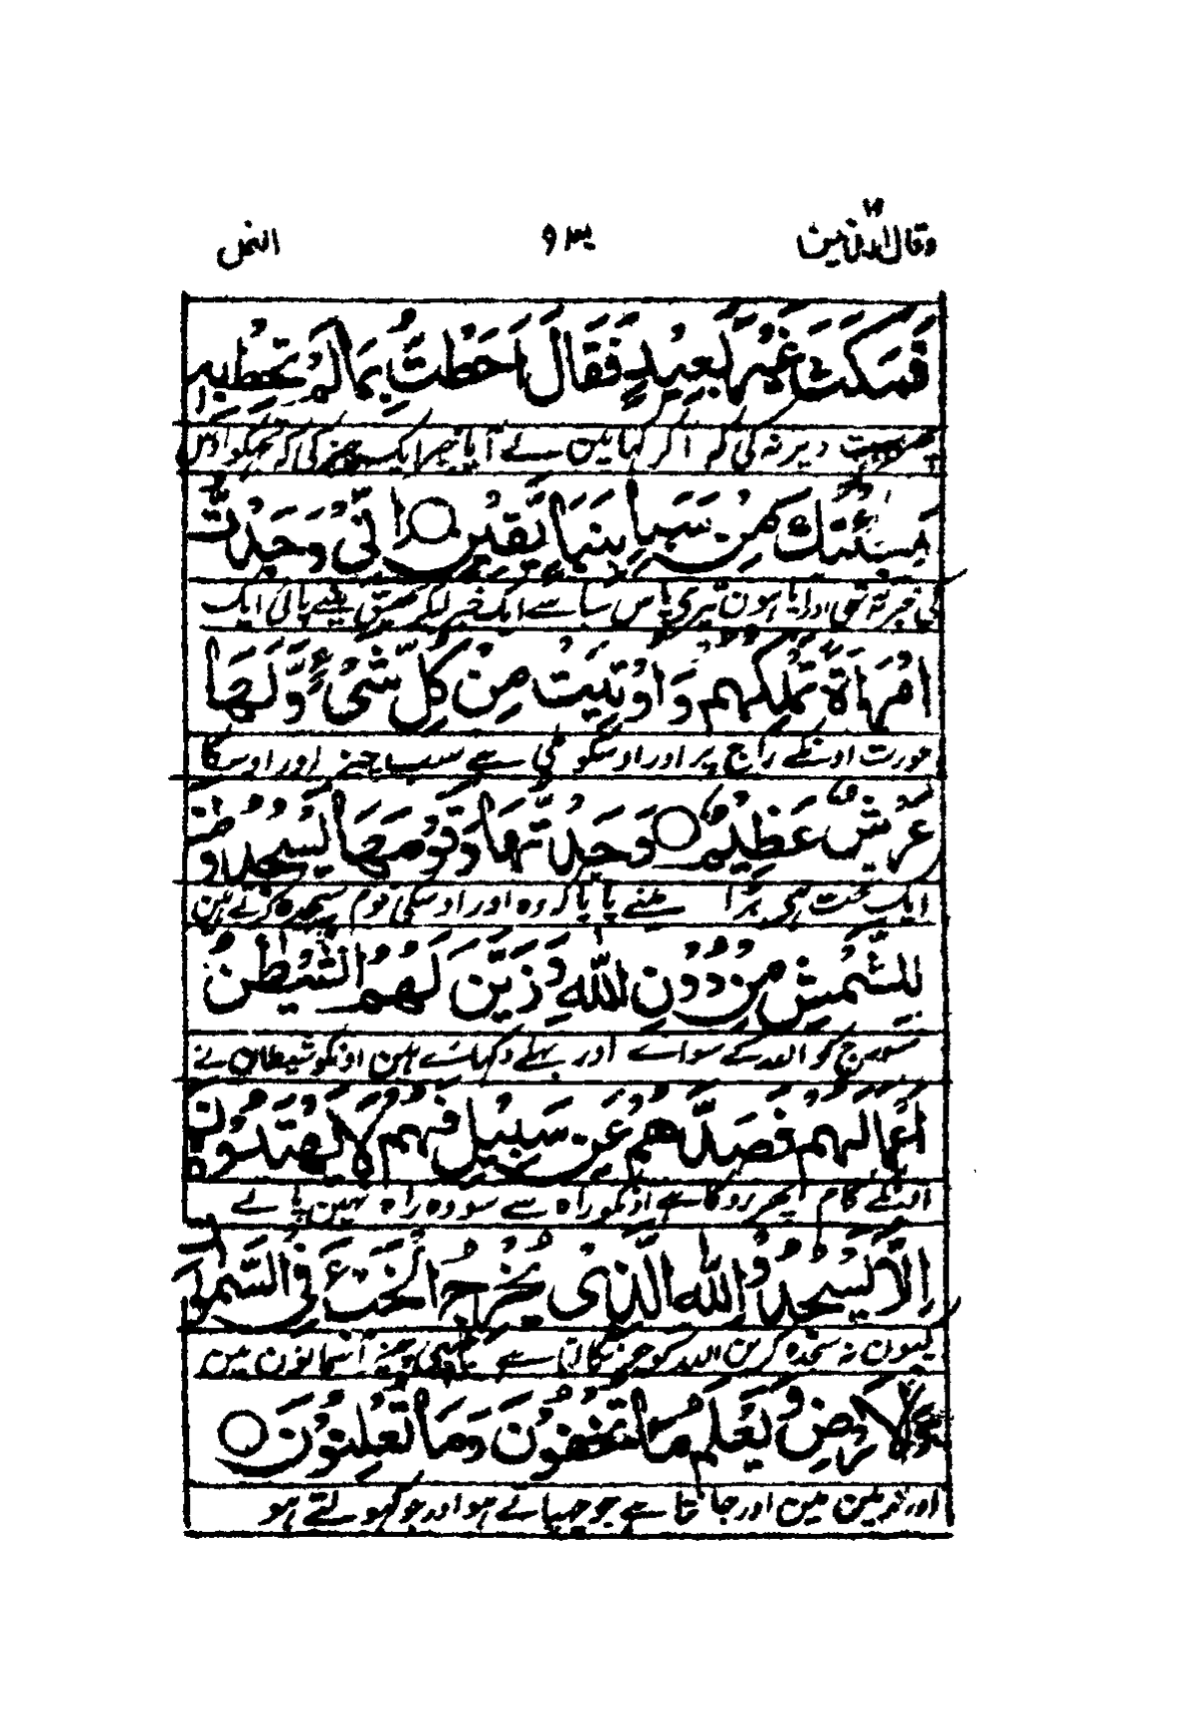 وقال الذين ١٩ ٩٣٤ النمل
فَمَكَثَ غَيْرَ بَعِيْدٍ فَقَالَ اَحَطْتُّ بِمَا لَمْ تُحِطْ بِهٖ
بہت دیر نہ کی کہ آکر کہا مین سے آیا خبر ایک چیز کی کہ تجہکو اوس
وَجِئْتُكَ مِنْ سَبَاٍۭ بِنَبَاٍ يَّقِيْنٍ ○ اِنِّيْ وَجَدْتُّ
کی خبر نہ تہی اور آیا ہون تیری پاس سبا سے ایک خبر لیکر تحقیق مینے پائی ایک
امْرَاَةً تَمْلِكُهُمْ وَاُوْتِيَتْ مِنْ كُلِّ شَيْءٍ وَّلَهَا
عورت اونکے راج پر اور اوسکو ملی سے سب چیز اور اوسکا
عَرْشٌ عَظِيْمٌ ○ وَجَدْتُّهَا وَقَوْمَهَا يَسْجُدُوْنَ
ایک تخت ہی بڑا مینے پایا کہ وہ اور اوسکی قوم سجدہ کرتے ہین
لِلشَّمْسِ مِنْ دُوْنِ اللّٰهِ وَزَيَّنَ لَهُمُ الشَّيْطٰنُ
سورج کو اللہ کے سواے اور بہلے دکہاے ہین اونکو شیطان نے
اَعْمَالَهُمْ فَصَدَّهُمْ عَنِ السَّبِيْلِ فَهُمْ لَا يَهْتَدُوْنَ
اونکے کام پہر روکا ہے اونکو راہ سے سو وہ راہ نہین پاتے
اَلَّا يَسْجُدُوْا لِلّٰهِ الَّذِيْ يُخْرِجُ الْخَبْءَ فِي السَّمٰوٰتِ
کیون نہ سجدہ کرین اللہ کو جو نکالتا ہے چہپی چیز آسمانون مین
وَالْاَرْضِ وَيَعْلَمُ مَا تُخْفُوْنَ وَمَا تُعْلِنُوْنَ ○
اور زمین مین اور جانتا ہے جو چہپاتے ہو اور جو کہولتے ہو